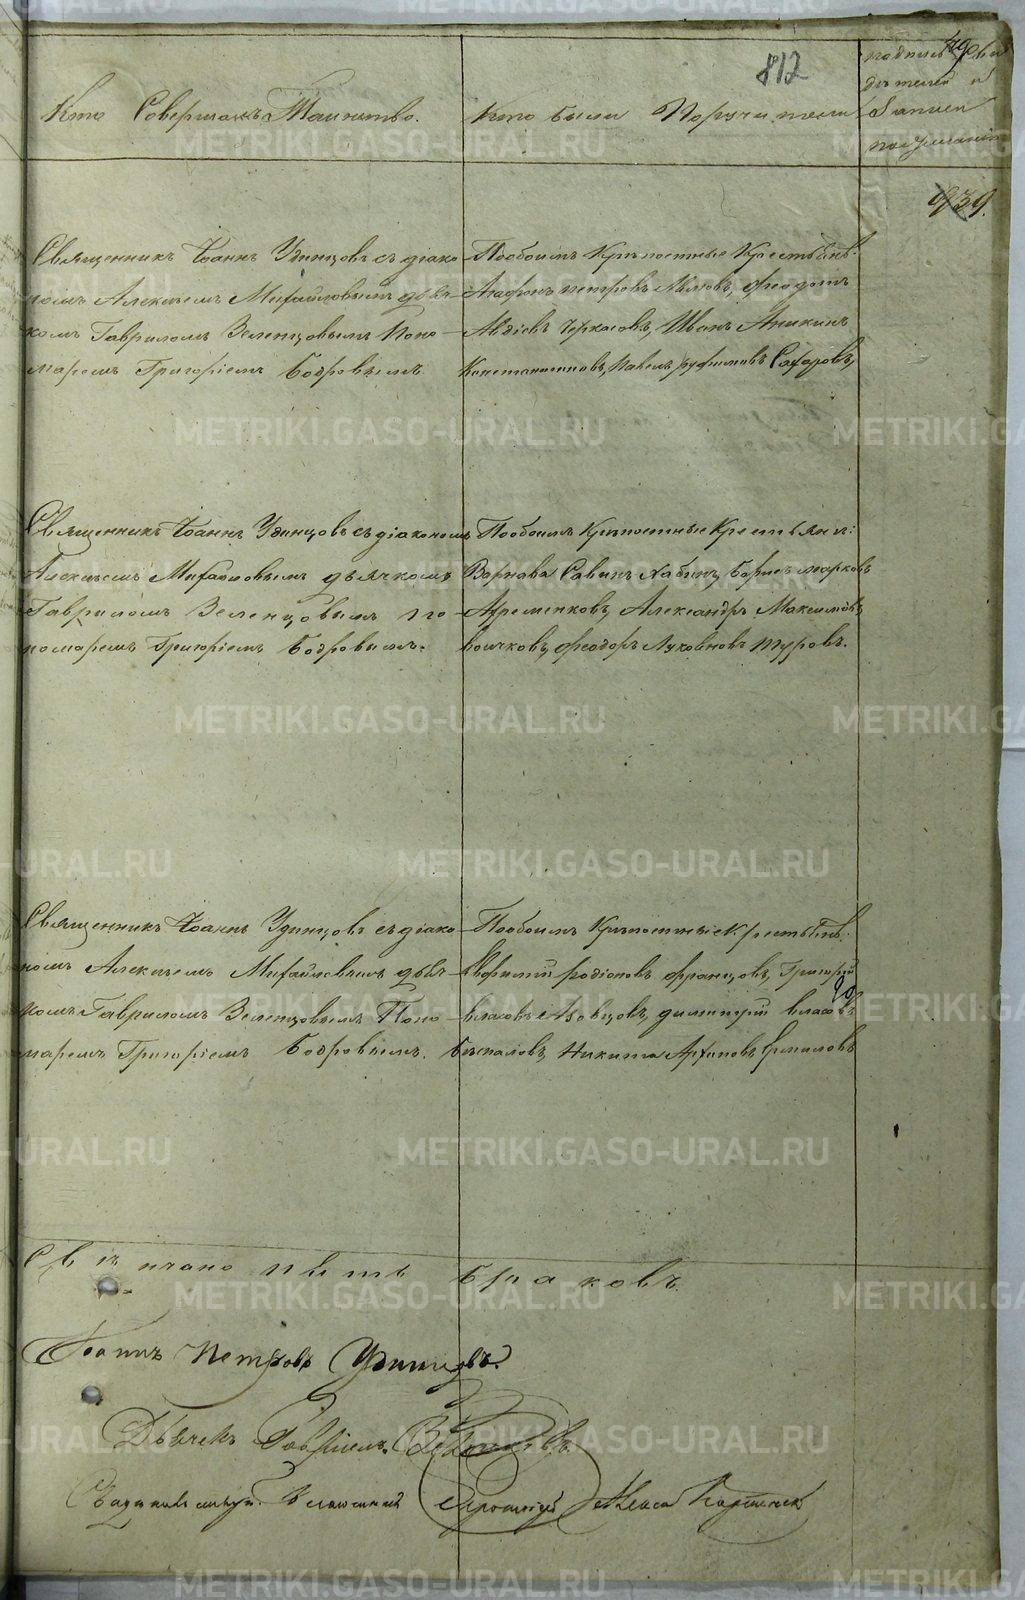 812
Кто Совершалъ Таинство.
Кто были Поручители
подпись
дѣтелей и
Записи
по желанію
939.
Священникъ Іоаннъ Удинцовъ съ діако-
номъ Алексѣемъ Михайловымъ дьяч-
комъ Гавриломъ Зеленцовымъ Поно-
маремъ Григоріемъ Бобровымъ
Пообоимъ Крѣпостные Крестьянѣ:
Агафонъ петровъ, феодотъ
Авдіевъ Черкасовъ, Иванъ Аникинъ
Константиновъ, Павелъ руфимовъ Сафаровъ,
Священникъ Іоаннъ Удинцовъ съ діакономъ
Алексѣемъ Михайловымъ дьячкомъ
Гавриломъ Зеленцовымъ по-
номаремъ Григоріемъ Бобровымъ.
Пообоимъ Крѣпостные Крестьяня:
Варнава Савинъ Хабинъ, Борисъ марковъ
Ефременковъ, Александръ Максимовъ
Волчковъ, феодоръ Туровъ.
Священникъ Іоаннъ Удинцовъ съ діако-
номъ Алексѣемъ Михайловымъ дьяч-
комъ Гавриломъ Зеленцовымъ Поно-
маремъ Григоріемъ Бобровымъ.
Пообоимъ Крѣпостные Крестьянѣ:
Ефимій родіоновъ францовъ, Григорій
власовъ Азовцовъ, димитрій власовъ
Безпаловъ, Никита Архиповъ Ермиловъ
пять браковъ.
Іоаннъ Петровъ Удинцовъ.
Дьячекъ Гавріилъ Зеленцовъ.
METRIKI.GASO-URAL.RU